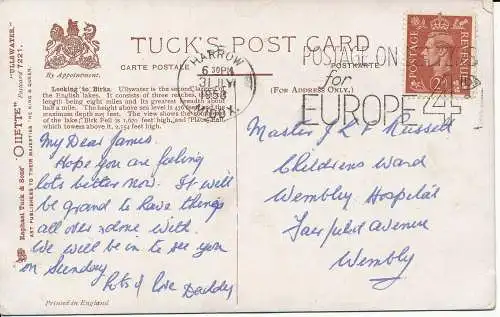 TUCK'S POST CARD
CARTE POSTALE
POSTKARTE
By Appointment.
(FOR ADDRESS ONLY.)
"ULLSWATER."
Postcard 7221.
"OILETTE"
Raphael Tuck & Sons'
ART PUBLISHERS TO THEIR MAJESTIES THE KING & QUEEN.
Looking to Birks. Ullswater is the second largest of
the English lakes. It consists of three reaches, the total
length being eight miles and its greatest breadth about
half a mile. The height above sea level is
maximum depth 205 feet. The view
of the lake. Birk Fell is 1,505 feet high, and
which towers above it,
HARROW
6 30PM
31 JLY
MDDX.
POSTAGE ON
for
EUROPE 4
POSTAGE
REVENUE
2
My Dear James.
Hope you are feeling
lots better now. It will
be grand to have things
all over & done with.
We will be in to see you
on Sunday
Lots of love Daddy
Master J L F Russett
Childrens Ward
Wembley Hospital
Fairfield Avenue
Wembly
Printed in England